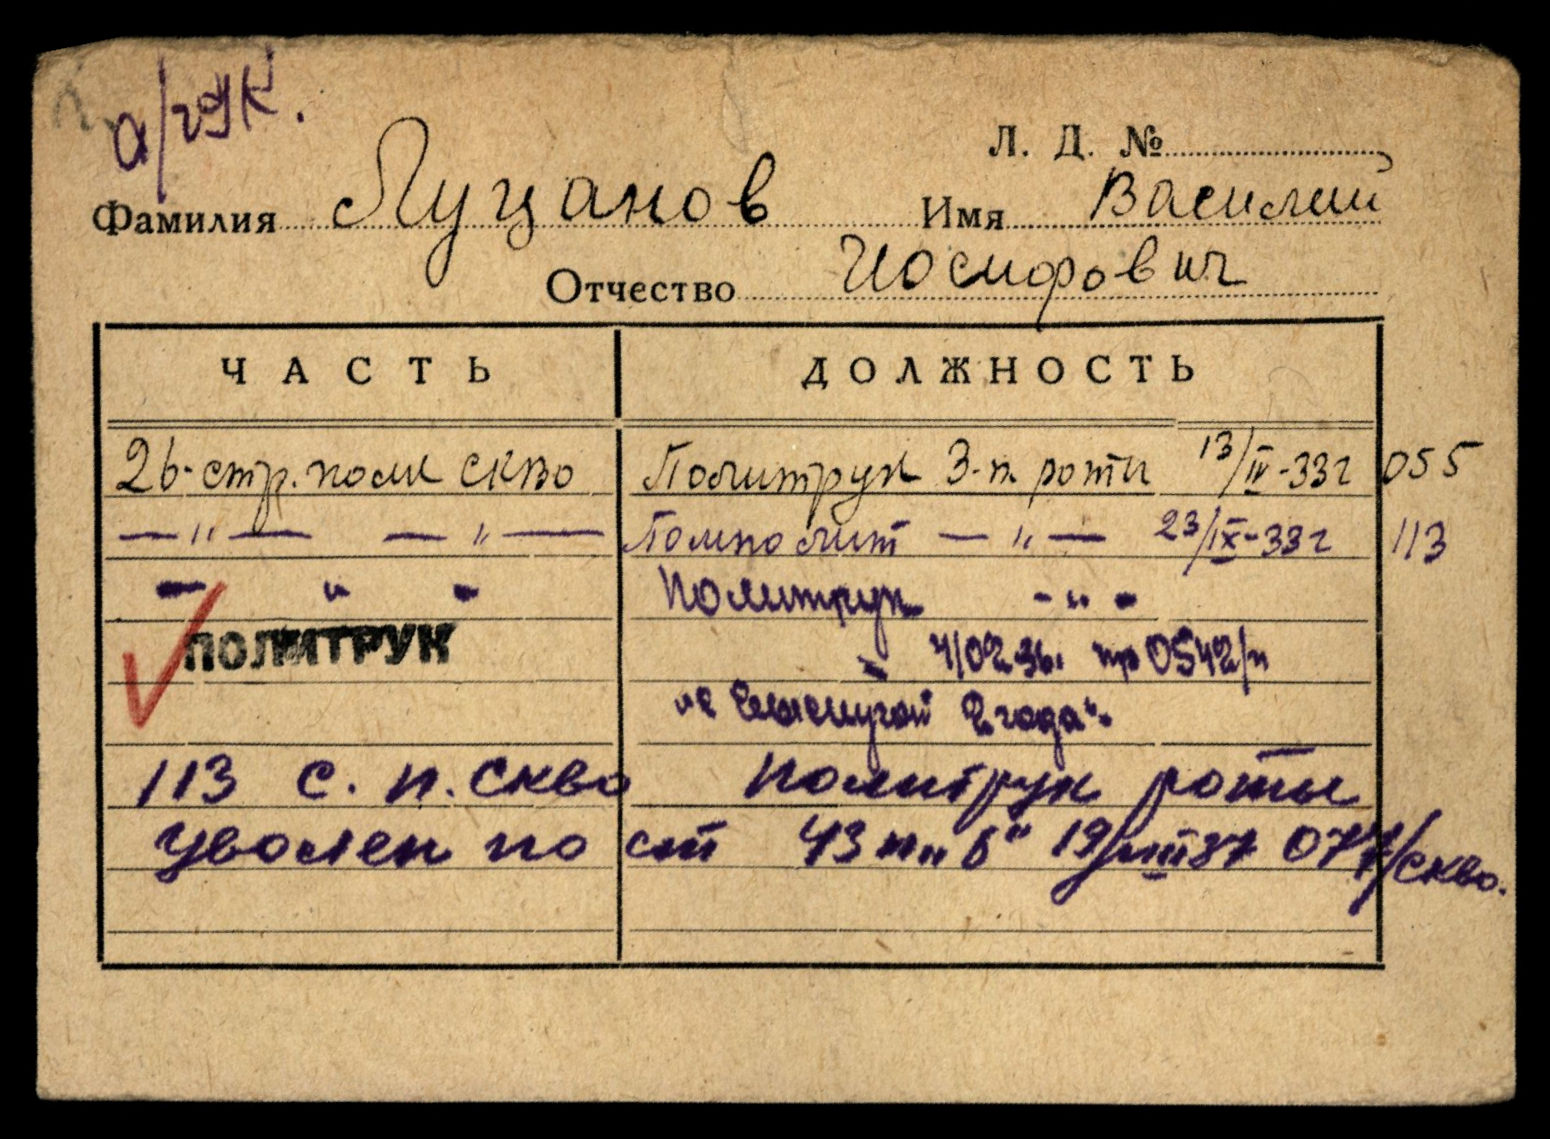 а/гук.
Л. Д. №
Фамилия Луцанов Имя Василий
Отчество Иосифович
ЧАСТЬ ДОЛЖНОСТЬ
26-стр. полк СКВО Политрук 3-п роты 13/IV-33г 055
— " — — " — Помполит — " — 23/IX-33г 113
- " - Политрук - " -
ПОЛИТРУК - 4/02 36. пр 0542/п
"с выслугой 2 года".
113 с. п. СКВО политрук роты
уволен по ст 43 п "б" 19/VIII 37 077/СКВО.